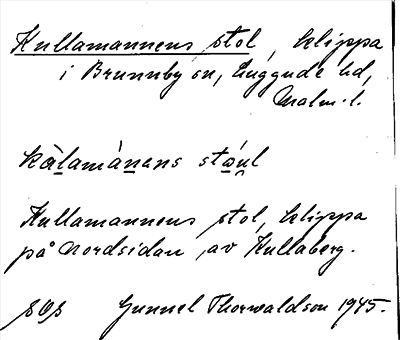 Kullamannens stol, klippa
i Brunnby sn, Luggude hd,
Malm. l.
kàlamánens stóul
Kullamannens stol, klippa
på nordsidan av Kullaberg.
Gunnel Thorwaldson 1945.